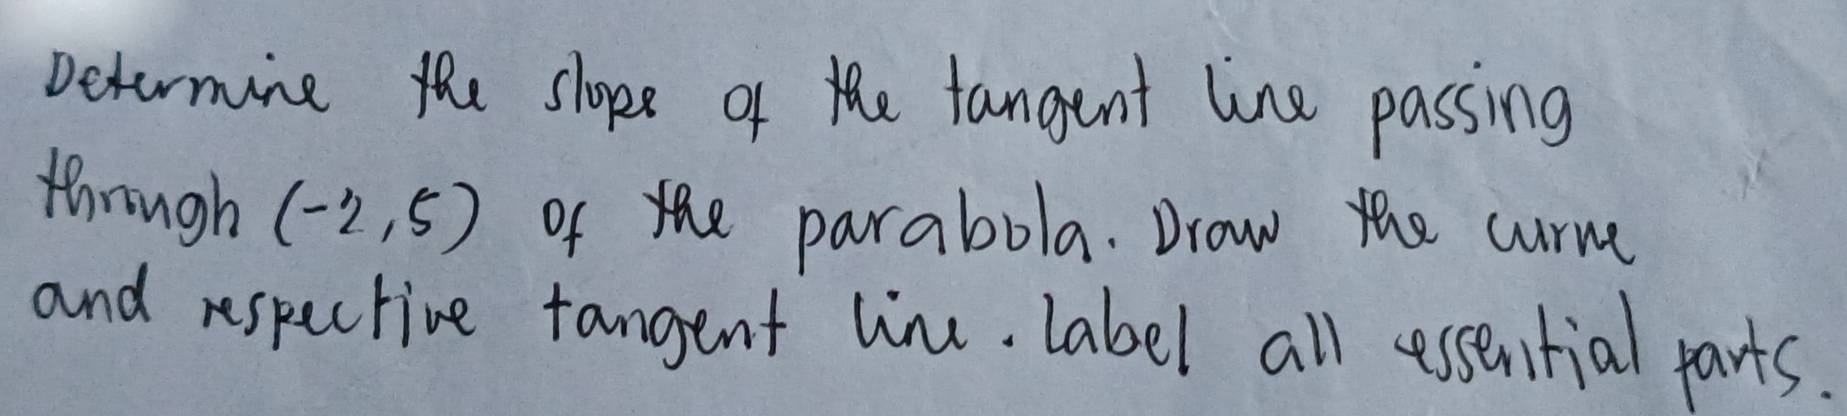 Determine the slope of the tangent line passing
through (-2,5) of the parabola. Draw the curve
and respective tangent line. Label all essential parts.